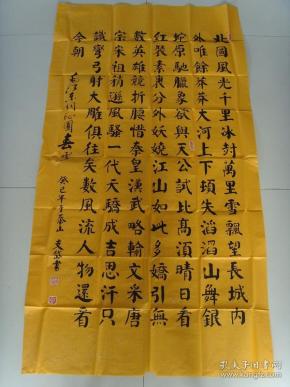 北國風光千里冰封萬里雪飄望長城內
外唯餘莽莽大河上下頓失滔滔山舞銀
蛇原馳臘象欲與天公試比高須晴日看
紅裝素裹分外妖嬈江山如此多嬌引無
數英雄競折腰惜秦皇漢武略輸文采唐
宗宋祖稍遜風騷一代天驕成吉思汗只
識彎弓射大雕俱往矣數風流人物還看
今朝
毛澤東詞沁園春雪
癸巳年